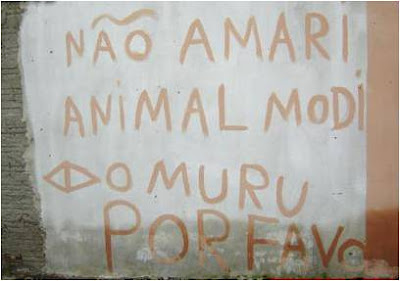 NÃO AMARI
ANIMAL MODI
O MURU
POR FAVO